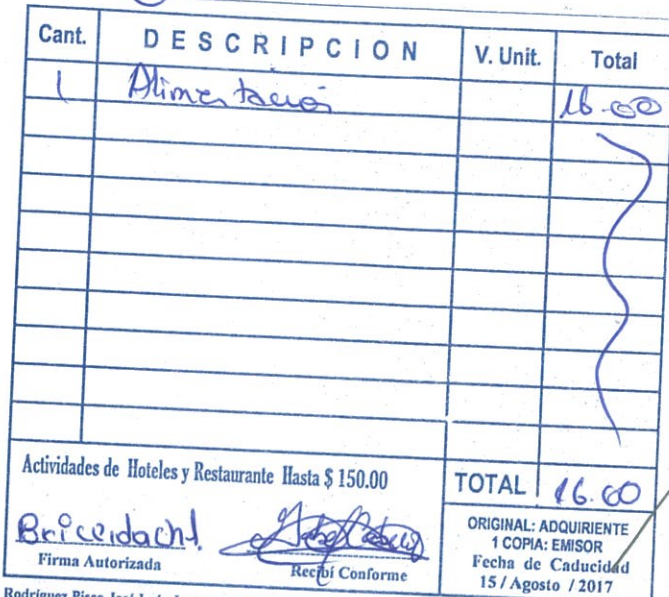 Cant. DESCRIPCION V. Unit. Total
1 Alimentación 16.00
Actividades de Hoteles y Restaurante Hasta $ 150.00
TOTAL 16.00
Firma Autorizada
Recibí Conforme
ORIGINAL: ADQUIRIENTE
1 COPIA: EMISOR
Fecha de Caducidad
15 / Agosto / 2017